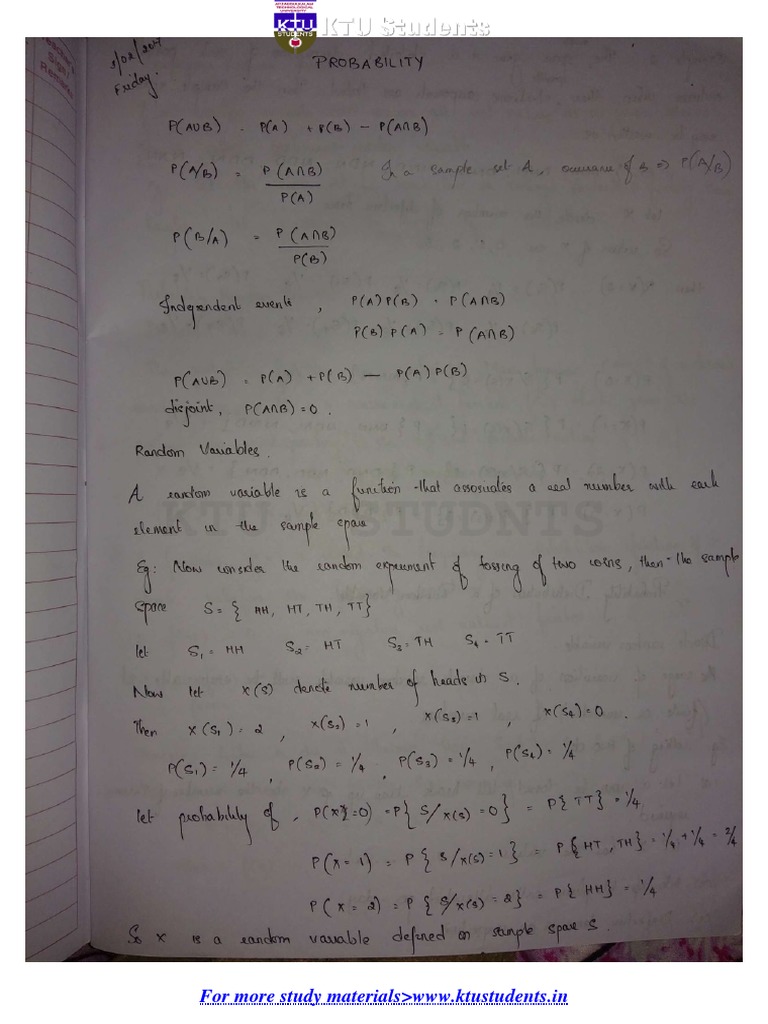 KTU STUDENTS
KTU Students
Teacher's
Sign /
Remarks
Friday.
PROBABILITY
P(A∪B) = P(A) + P(B) − P(A∩B)
P(A/B) = P(A∩B) / P(A) In a sample set A, occurance of B ⇒ P(A/B)
P(B/A) = P(A∩B) / P(B)
Independent events, P(A)P(B) = P(A∩B)
P(B)P(A) = P(A∩B)
P(A∪B) = P(A) + P(B) — P(A)P(B)
disjoint, P(A∩B) = 0.
Random Variables.
A random variable is a function that assosiates a real number with each
element in the sample space
KTU STUDNTS
Eg: Now consider the random experiment of tossing of two coins, then the sample
space S = { HH, HT, TH, TT}
let S₁ = HH S₂ = HT S₃ = TH S₄ = TT
Now let X(S) denote number of heads in S.
Then X(S₁) = 2, X(S₂) = 1, X(S₃) = 1, X(S₄) = 0.
P(S₁) = 1/4, P(S₂) = 1/4, P(S₃) = 1/4, P(S₄) = 1/4
let probability of, P(X=0) = P{ S/X(S) = 0} = P{TT} = 1/4
P(X = 1) = P{ S/X(S) = 1} = P{ HT, TH} = 1/4 + 1/4 = 2/4
P(X = 2) = P{ S/X(S) = 2} = P{ HH} = 1/4
So X is a random variable defined on sample space S.
For more study materials>www.ktustudents.in